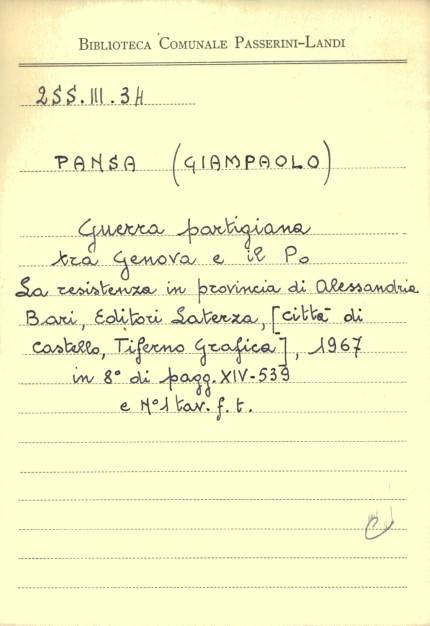 BIBLIOTECA COMUNALE PASSERINI-LANDI
255.III.34
PANSA (GIAMPAOLO)
Guerra partigiana
tra Genova e il Po
La resistenza in provincia di Alessandria
Bari, Editori Laterza, [città di
Castello, Tiferno Grafica], 1967
in 8° di pagg. XIV-539
e N° 1 tav. f. t.